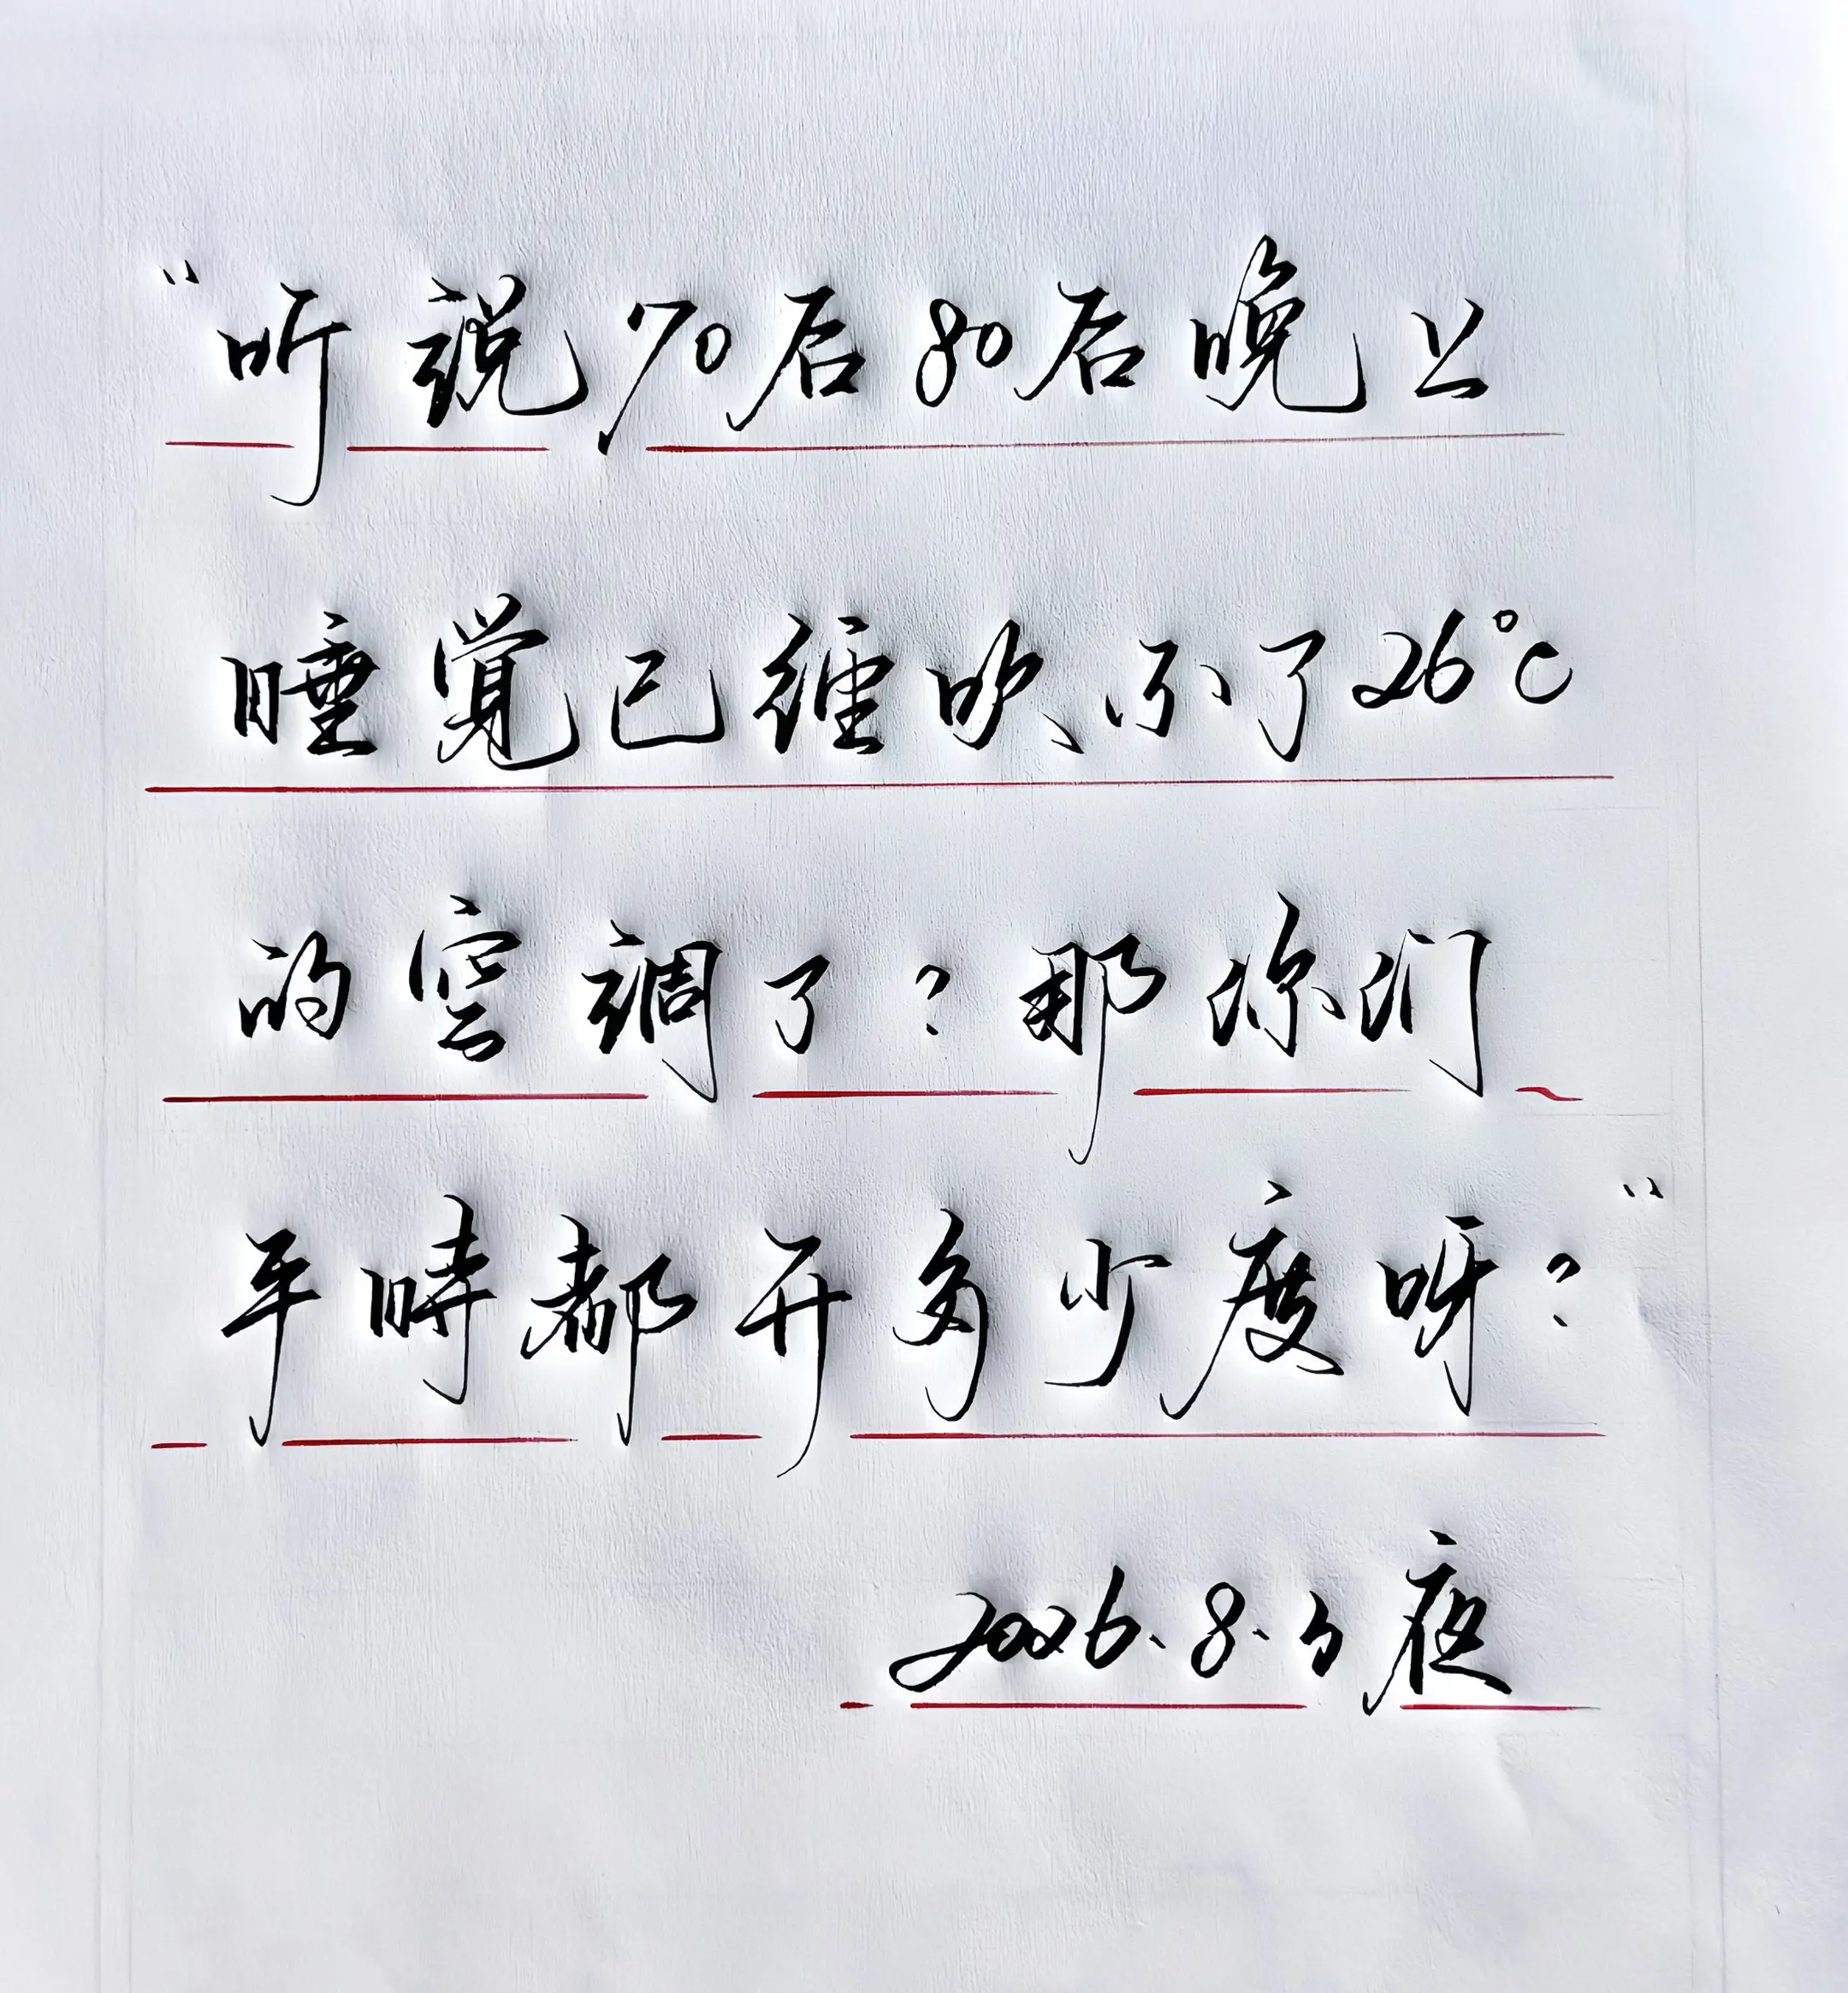 “听说70后80后晚上
睡覚已经吹不了26℃
的空調了？那你们
平時都开多少度呀？”
2026.8.3夜